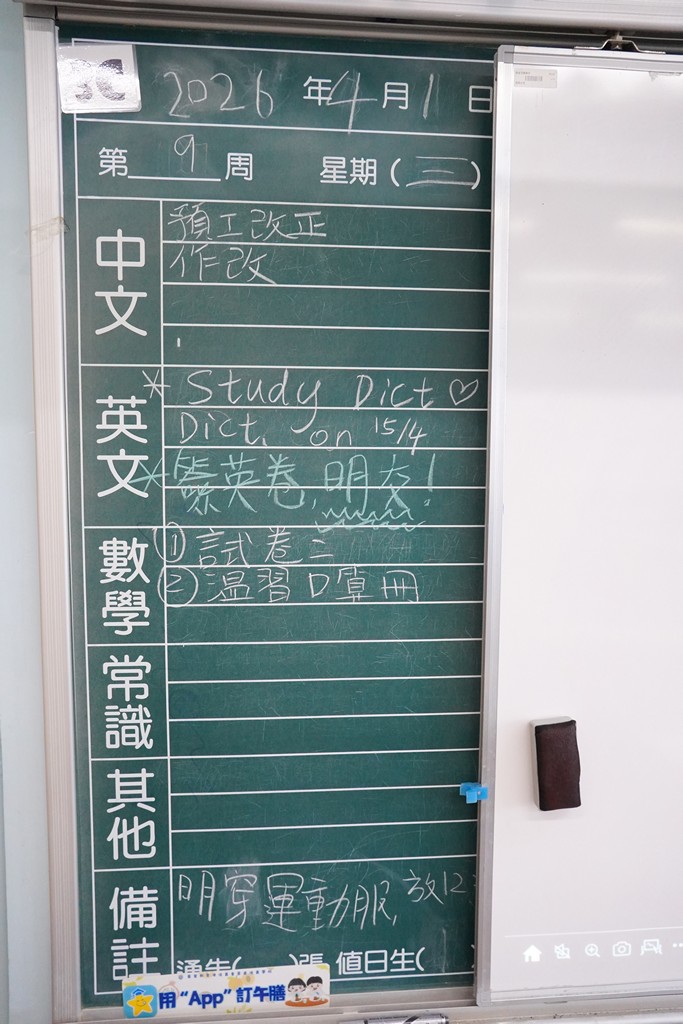 2026年4月1日
第9周 星期(三)
中文
預工改正
作改
英文
* Study Dict ♡
Dict. on 15/4
* 簽英卷,明交!
數學
① 試卷三
② 温習口算冊
常識
其他
備註
明穿運動服,放12
通告( )張 值日生(
用“App”訂午膳